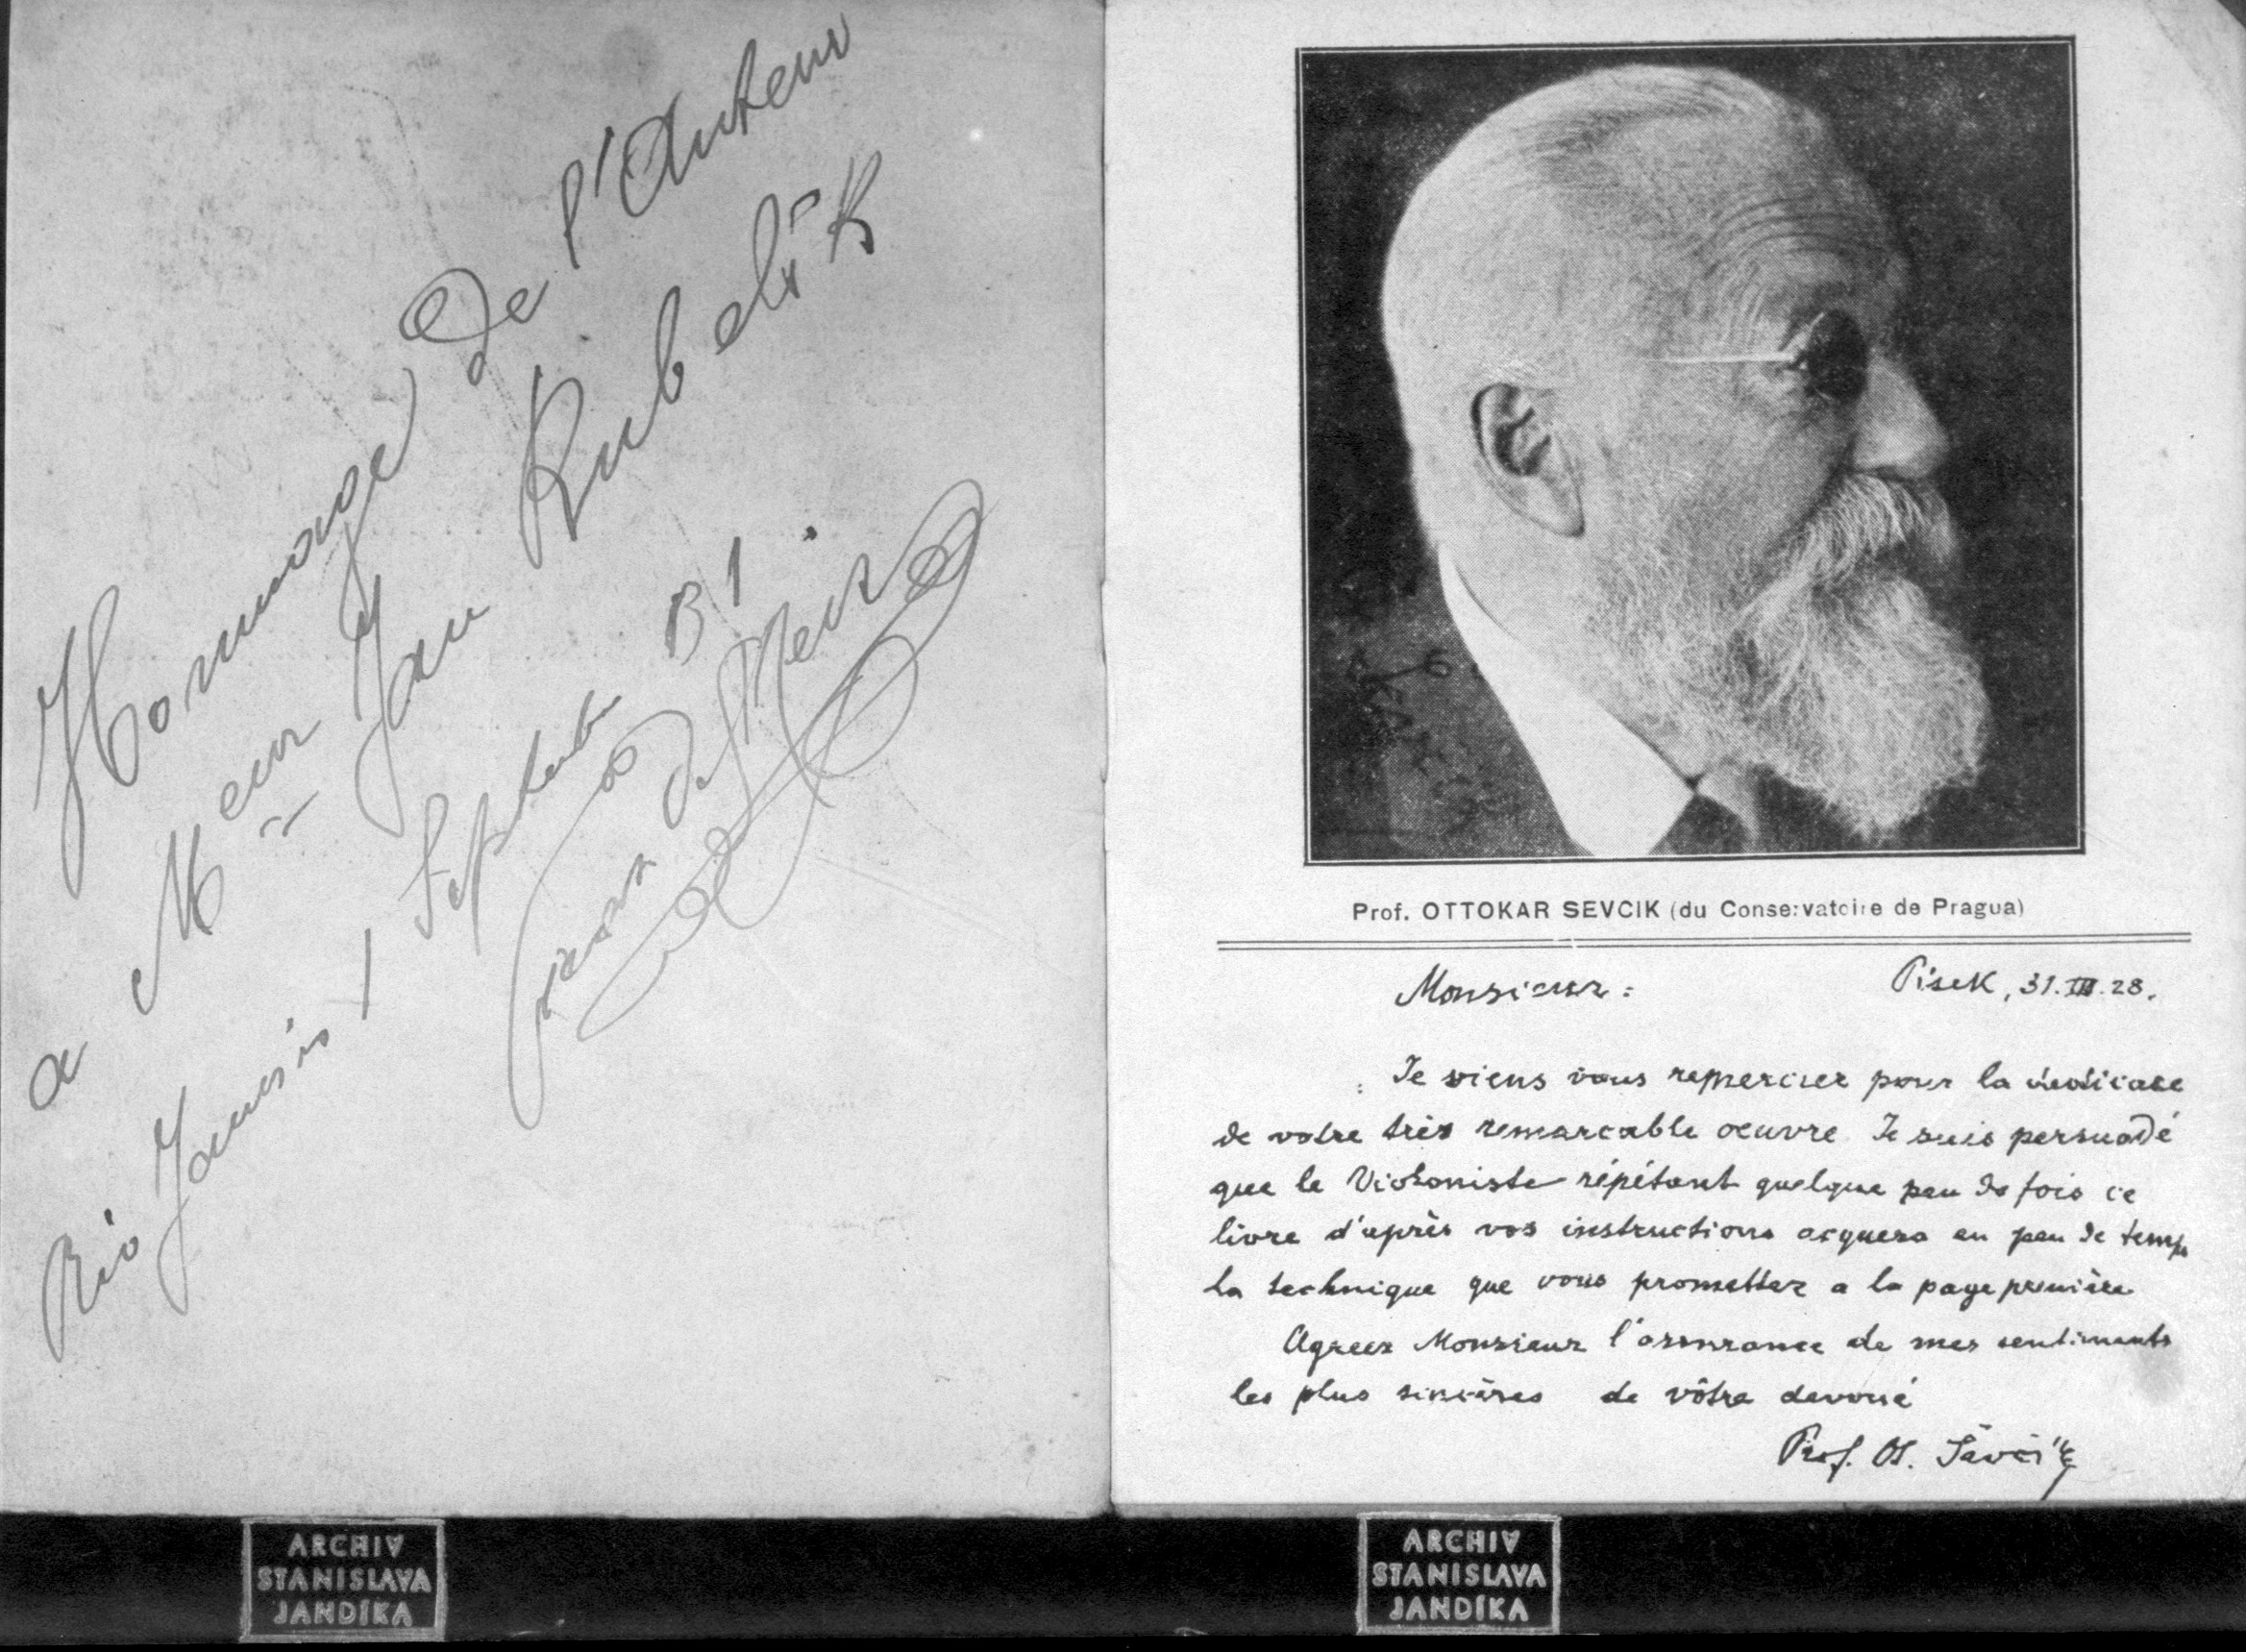 Hommage de l'Auteur
a Meur Jan Kubelik
Rio Janeiro 1 Septembre 31.
de
Prof. OTTOKAR SEVCIK (du Conservatoire de Pragua)
Monsieur: Pisek, 31.III.28.
Je viens vous remercier pour la dedicace
de votre très remarcable oeuvre. Je suis persuadé
que le Violoniste répétant quelque peu de fois ce
livre d'après vos instructions acquera en peu de temps
la technique que vous promettez a la page première
Agreez Monsieur l'assurance de mes sentiments
les plus sincères de vôtre devoué
Prof. Ot. Ševčík
ARCHIV
STANISLAVA
JANDÍKA
ARCHIV
STANISLAVA
JANDÍKA